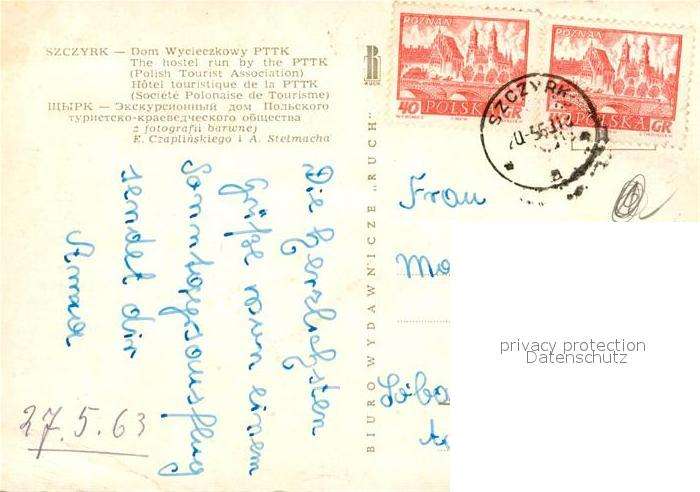 SZCZYRK — Dom Wycieczkowy PTTK
The hostel run by the PTTK
(Polish Tourist Association)
Hôtel touristique de la PTTK
(Société Polonaise de Tourisme)
ЩЫРК — Экскурсионный дом Польского
туристско-краеведческого общества
z fotografii barwnej
E. Czaplińskiego i A. Stelmacha
RUCH
BIURO WYDAWNICZE „RUCH"
POZNAŃ
40 POLSKA GR
POZNAŃ
POLSKA GR
SZCZYRK
Die herzlichsten
Grüße von einem
Sonntagsausflug
sendet dir
27.5.63
Frau
privacy protection
Datenschutz